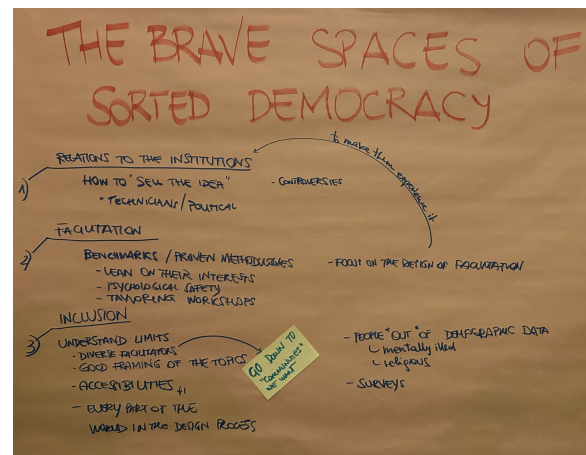 THE BRAVE SPACES OF
SORTED DEMOCRACY
1) RELATIONS TO THE INSTITUTIONS
HOW TO "SELL THE IDEA"
- CONTROVERSIES
• TECHNICIANS / POLITICAL
to make them experience it
2) FACILITATION
BENCHMARKS / PROVEN METHODOLOGIES
- LEAN ON THEIR INTERESTS
- PSYCHOLOGICAL SAFETY
- TAYLORING WORKSHOPS
- FOCUS ON THE DESIGN OF FACILITATION
3) INCLUSION
UNDERSTAND LIMITS
- DIVERSE FACILITATORS
- GOOD FRAMING OF THE TOPICS
- ACCESSIBILITIES +1
- EVERY PART OF THE
WORLD IN THE DESIGN PROCESS
GO DOWN TO
"COMMUNITIES"
WE WANT
- PEOPLE "OUT" OF DEMOGRAPHIC DATA
mentally
religious
- SURVEYS